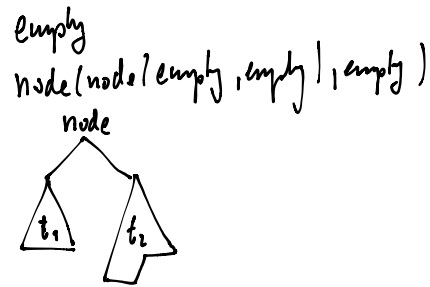 empty
node(node(empty,empty),empty)
node
t₁
t₂